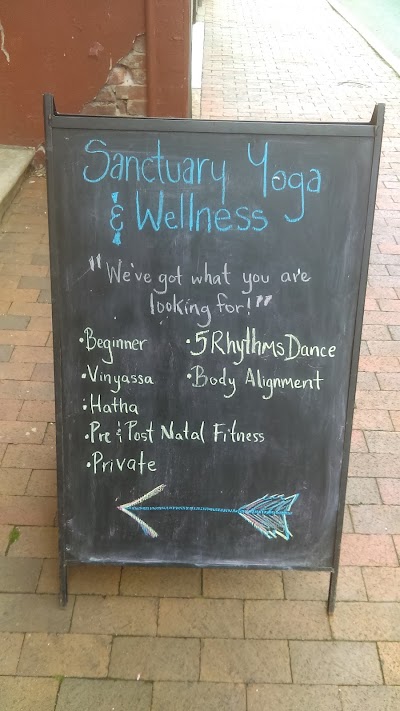 Sanctuary Yoga
& Wellness
"We've got what you are
looking for!"
•Beginner
•Vinyassa
•Hatha
•Pre & Post Natal Fitness
•Private
•5RhythmsDance
•Body Alignment